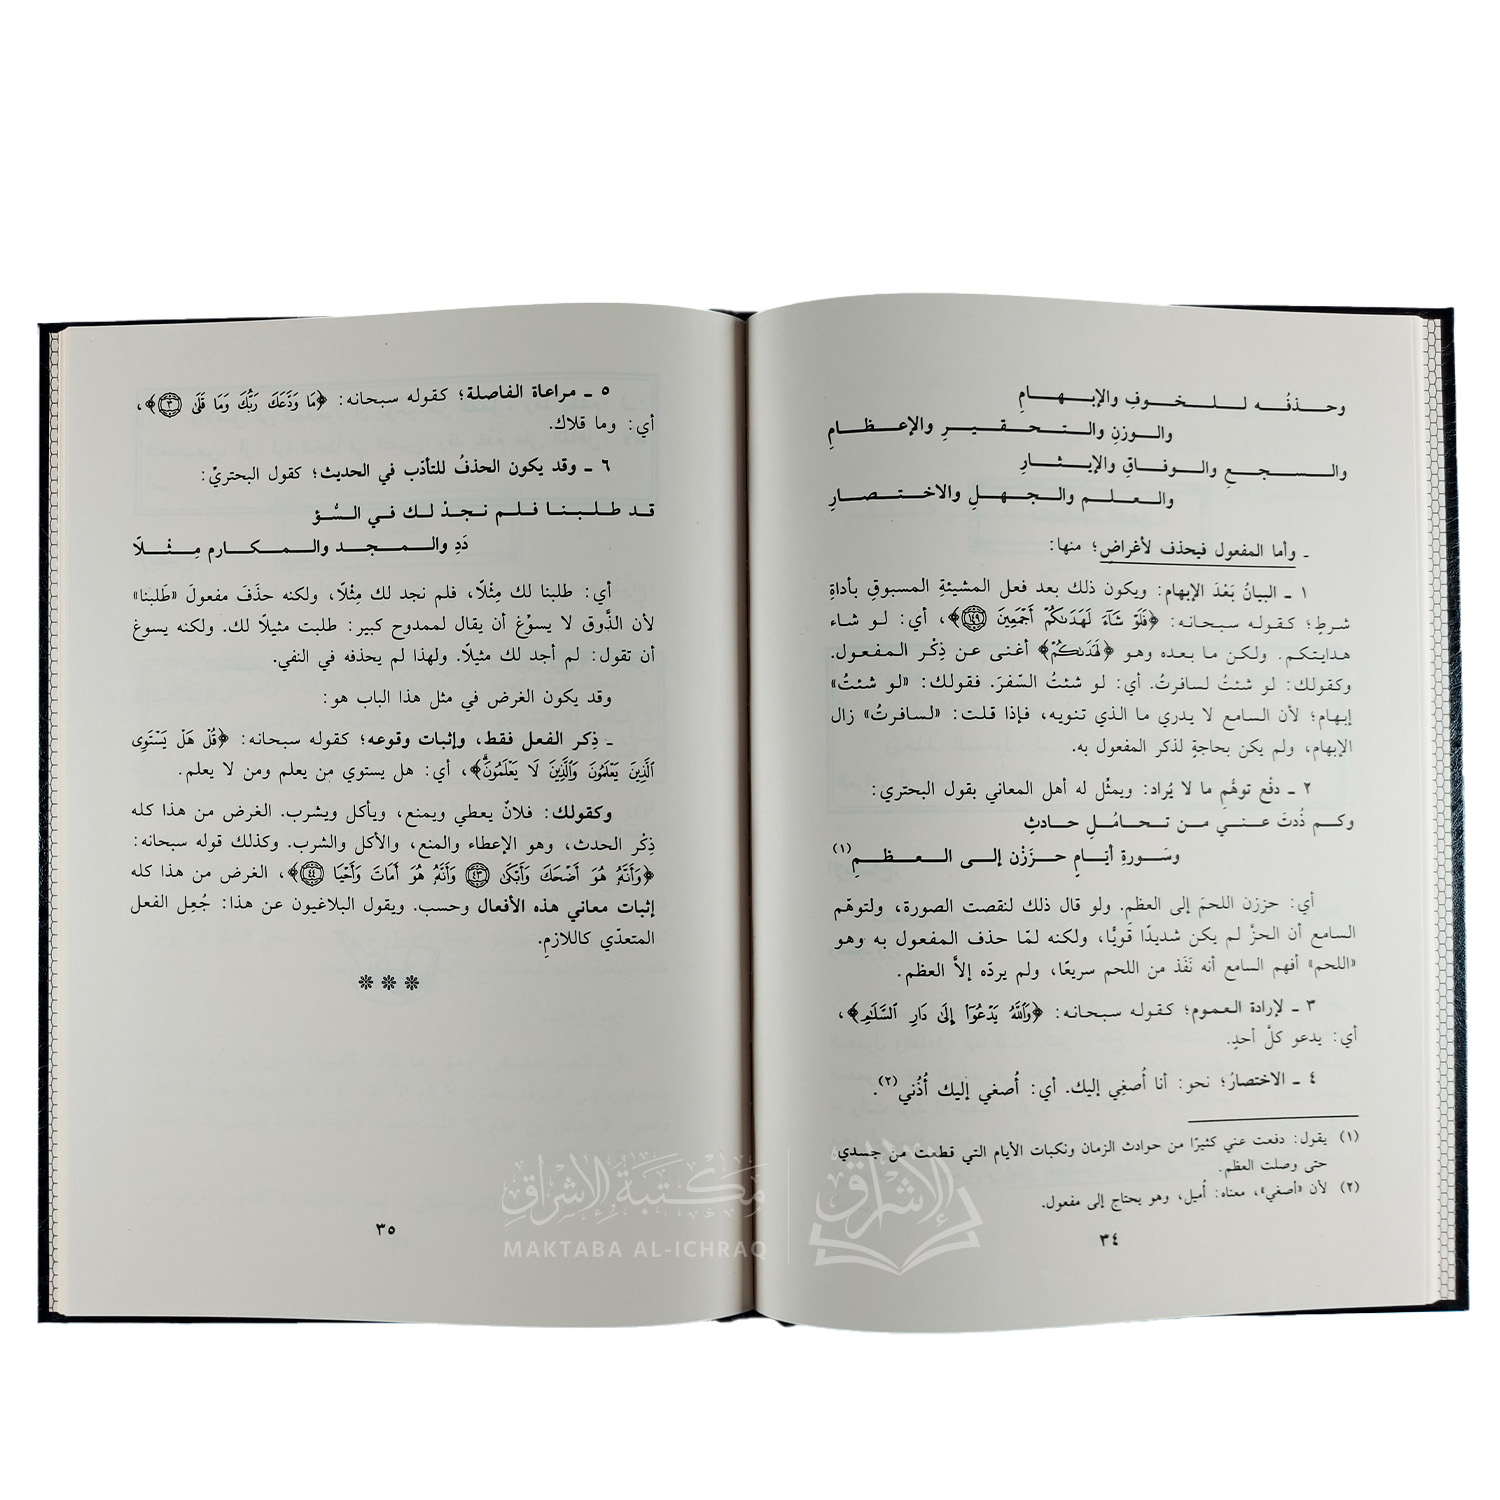 وحـذفُـه لـلـخـوفِ والإبـهـامِ
والـوزنِ والـتـحـقـيـرِ والإعـظـامِ
والـسـجـعِ والـوفـاقِ والإيـثـارِ
والـعـلـم والـجـهـلِ والاخـتـصـارِ
ـ وأما المفعول فيحذف لأغراضٍ؛ منها:
١ ـ البيانُ بَعْدَ الإبهام: ويكون ذلك بعد فعل المشيئةِ المسبوقِ بأداةِ
شرطٍ؛ كقوله سبحانه: ﴿فَلَوْ شَآءَ لَهَدَىٰكُمْ أَجْمَعِينَ ١٤٩﴾، أي: لو شاء
هدايتكم. ولكن ما بعده وهو ﴿لَهَدَىٰكُمْ﴾ أغنى عن ذِكْر المفعول.
وكقولك: لو شئتُ لسافرتُ. أي: لو شئتُ السّفرَ. فقولك: «لو شئتُ»
إبهام؛ لأن السامع لا يدري ما الذي تنويه، فإذا قلت: «لسافرتُ» زال
الإبهام، ولم يكن بحاجةٍ لذكر المفعول به.
٢ ـ دفْع توهُّمِ ما لا يُراد: ويمثْل له أهل المعاني بقول البحتري:
وكـم ذُدتَ عـنـي مـن تـحـامُـلِ حـادثٍ
وسَـورةِ أيّـامٍ حـزَزْن إلـى الـعـظـمِ (١)
أي: حززن اللحمَ إلى العظم. ولو قال ذلك لنقصت الصورة، ولتوهّم
السامع أن الحزّ لم يكن شديدًا قويًّا، ولكنه لمّا حذف المفعول به وهو
«اللحم» أفهم السامع أنه نَفَذ من اللحم سريعًا، ولم يردّه إلاَّ العظم.
٣ ـ لإرادة العموم؛ كقوله سبحانه: ﴿وَٱللَّهُ يَدْعُوٓا۟ إِلَىٰ دَارِ ٱلسَّلَٰمِ﴾،
أي: يدعو كلّ أحدٍ.
٤ ـ الاختصارُ؛ نحو: أنا أُصغِي إليك. أي: أُصغي إليك أُذُني (٢).
(١) يقول: دفعت عني كثيرًا من حوادث الزمان ونكبات الأيام التي قطعت من جسدي
حتى وصلت العظم.
(٢) لأن «أصغي»، معناه: أُميل، وهو يحتاج إلى مفعول.
٣٤
٥ ـ مراعاة الفاصلة؛ كقوله سبحانه: ﴿مَا وَدَّعَكَ رَبُّكَ وَمَا قَلَىٰ ٣﴾،
أي: وما قلاك.
٦ ـ وقد يكون الحذفُ للتأدّب في الحديث؛ كقول البحتريّ:
قـد طـلـبـنـا فـلـم نـجـدْ لـك فـي الـسُّـؤ
دَدِ والـمـجـد والـمـكـارم مِـثْـلًا
أي: طلبنا لك مِثْلًا، فلم نجد لك مِثْلًا، ولكنه حذَفَ مفعولَ «طَلبنا»
لأن الذَّوق لا يسوّغ أن يقال لممدوح كبير: طلبت مثيلًا لك. ولكنه يسوغ
أن تقول: لم أجد لك مثيلًا. ولهذا لم يحذفه في النفي.
وقد يكون الغرض في مثل هذا الباب هو:
ـ ذِكر الفعل فقط، وإثبات وقوعه؛ كقوله سبحانه: ﴿قُلْ هَلْ يَسْتَوِى
ٱلَّذِينَ يَعْلَمُونَ وَٱلَّذِينَ لَا يَعْلَمُونَ﴾، أي: هل يستوي من يعلم ومن لا يعلم.
وكقولك: فلانٌ يعطي ويمنع، ويأكل ويشرب. الغرض من هذا كله
ذِكْر الحدث، وهو الإعطاء والمنع، والأكل والشرب. وكذلك قوله سبحانه:
﴿وَأَنَّهُۥ هُوَ أَضْحَكَ وَأَبْكَىٰ ٤٣ وَأَنَّهُۥ هُوَ أَمَاتَ وَأَحْيَا ٤٤﴾، الغرض من هذا كله
إثبات معاني هذه الأفعال وحسب. ويقول البلاغيون عن هذا: جُعِل الفعل
المتعدّي كاللازمِ.
٣٥
مكتبة الإشراق
MAKTABA AL-ICHRAQ
الإشراق